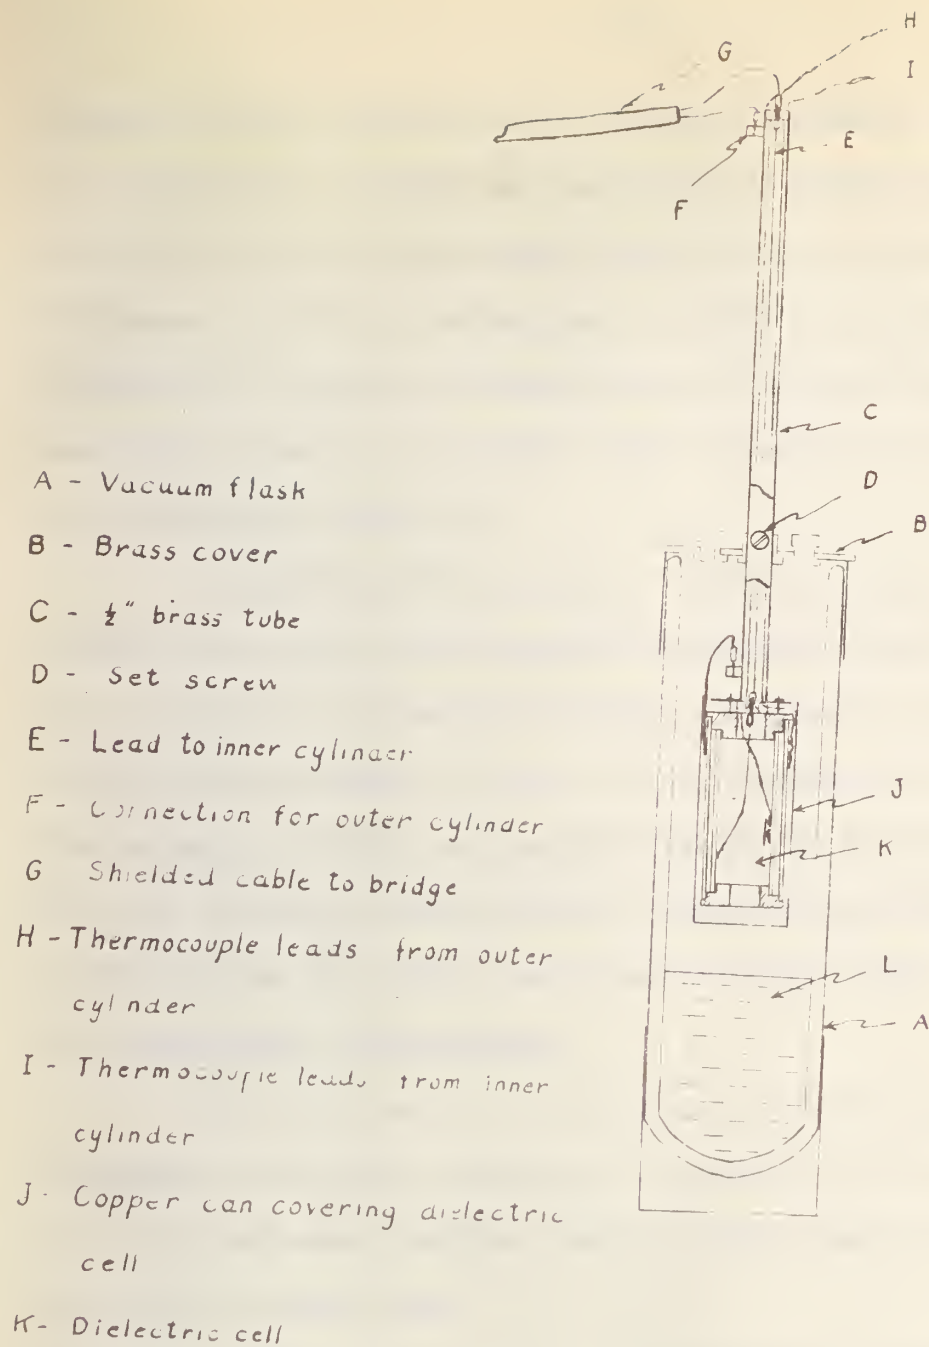 H
G
I
E
F
C
D
B
A - Vacuum flask
B - Brass cover
C - ½" brass tube
D - Set screw
E - Lead to inner cylinder
J
F - Connection for outer cylinder
K
G Shielded cable to bridge
H - Thermocouple leads from outer
L
cylinder
A
I - Thermocouple leads from inner
cylinder
J - Copper can covering dielectric
cell
K - Dielectric cell